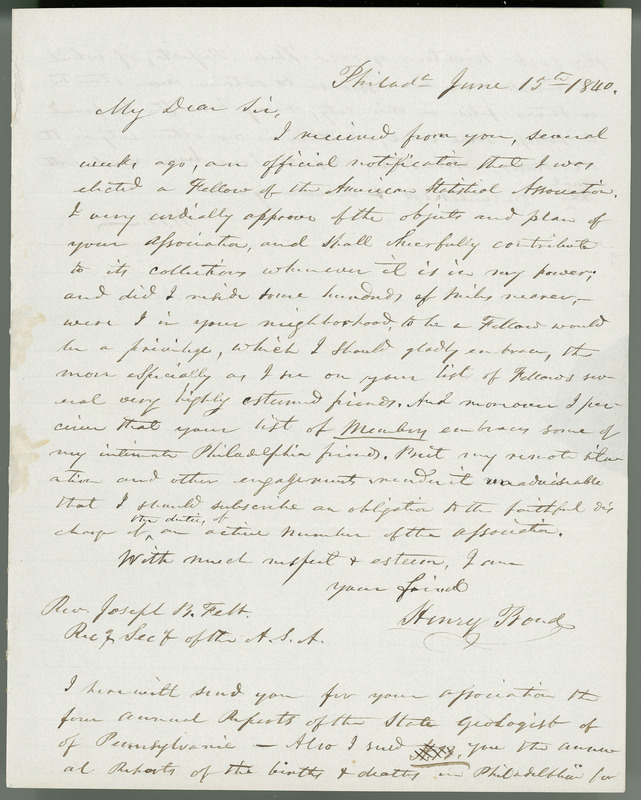 Philada June 15th 1840.
My Dear Sir,
I received from you, several
weeks ago, an official notification that I was
elected a Fellow of the American Statistial Association.
I very cordially approve of the objects and plan of
your Association, and shall cheerfully contribute
to its collections whenever it is in my power;
and did I reside some hundreds of miles nearer,—
were I in your neighborhood, to be a Fellow would
be a privilege, which I should gladly embrace, the
more especially as I see on your list of Fellows sev-
eral very highly esteemed friends. And moreover I per-
ceive that your list of Members embraces some of
my intimate Philadelphia friends. But my remote situ-
ation and other engagements render it unadvisable
that I should subscribe an obligation to the faithful dis
the duties of
charge of, an active Member of the Association.
With much respect & esteem, I am
your friend
Henry Bond
Rev. Joseph B. Felt.
Recg Secy of the A. S. A.
I herewith send you for your Association the
four annual Reports of the State Geologist of
of Pennsylvania — Also I send you the annu-
al Reports of the births & deaths in Philadelphia for